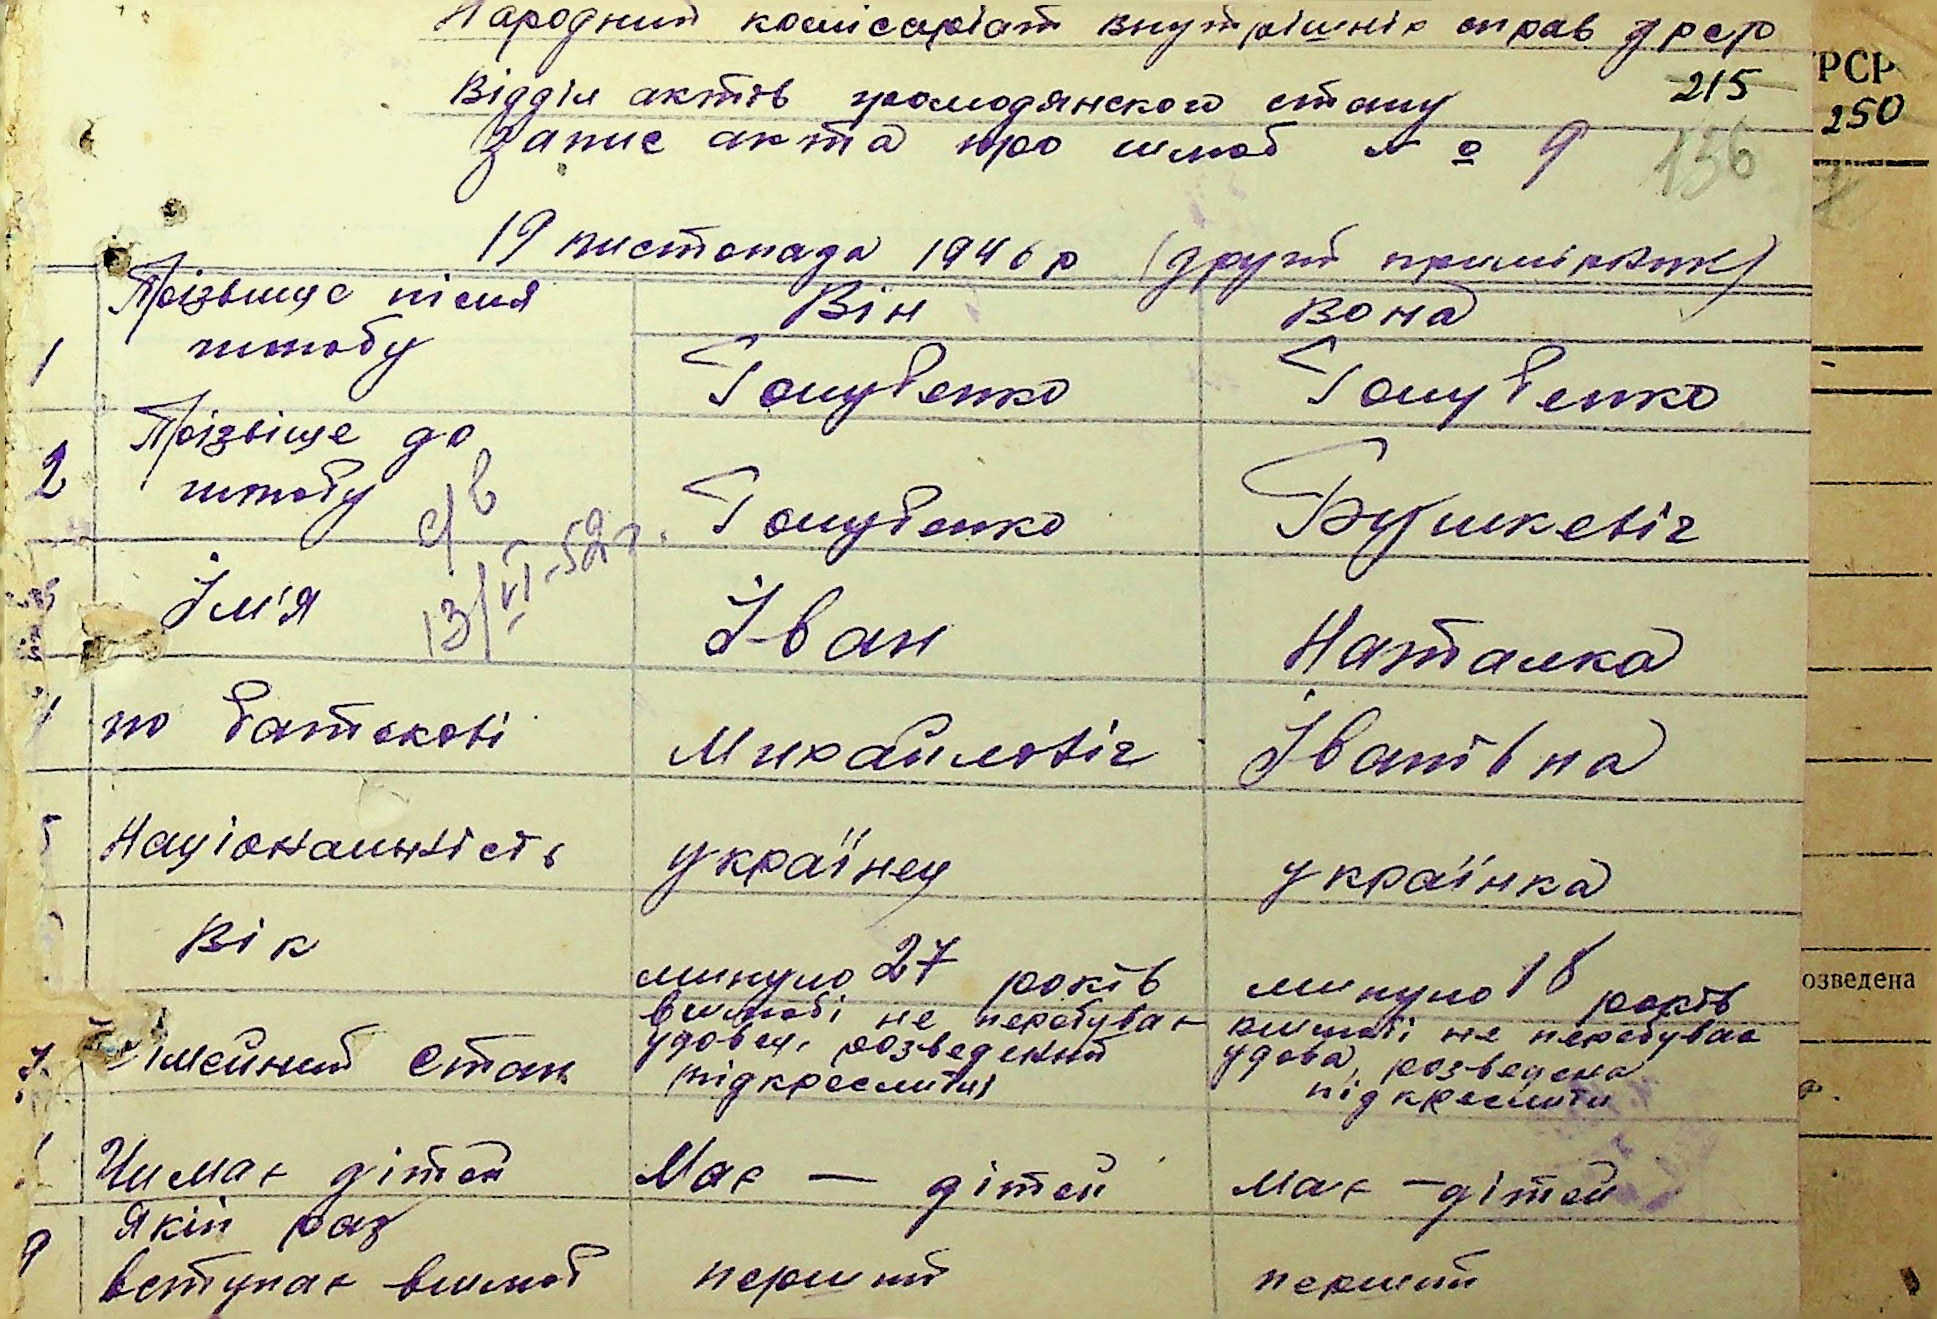 Народний комісаріат внутрішніх справ УРСР
Відділ актів громодянского стану
215
Запис акта про шлюб № 9
156
19 листопада 1946 р (другий примірник)
РСР
250
Він
Вона
1 Прізвище після шлюбу
Голубенко
Голубенко
2 Прізвіще до шлюбу
Голубенко
Бушкевіч
13/VI-52 г.
Ім'я
Іван
Наталка
по батькові
Михайловіч
Іванівна
5 Національність
українец
українка
Вік
минуло 27 років
минуло 18 років
7 сімейний стан
вшлюбі не перебував
удовец, розведений
підкреслити
вшлюбі не перебувае
удова, розведена
підкреслити
озведена
Чи має дітей
Має — дітей
має — дітей
9 Якій раз
вступає вшлюб
перший
перший